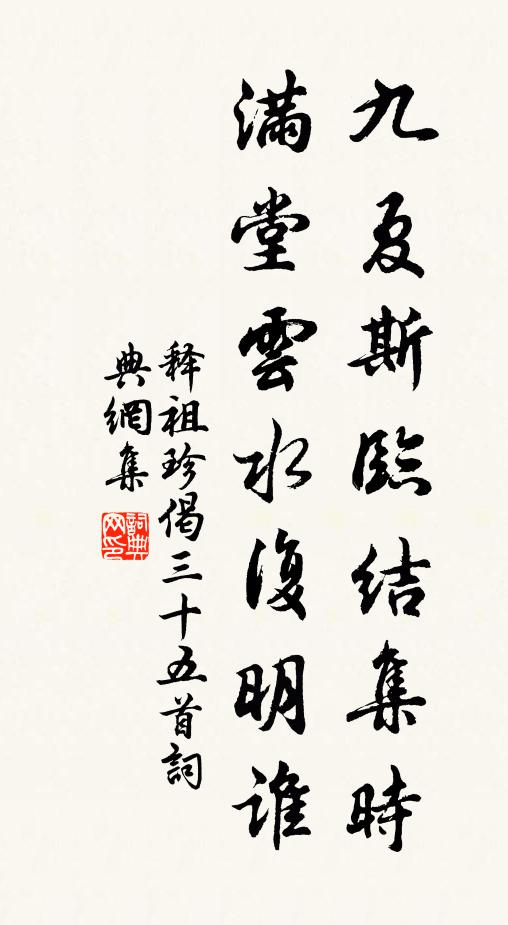 九夏斯臨結集時
滿堂雲水復明誰
释祖珍偈三十五首詞
典網集
詞典網印